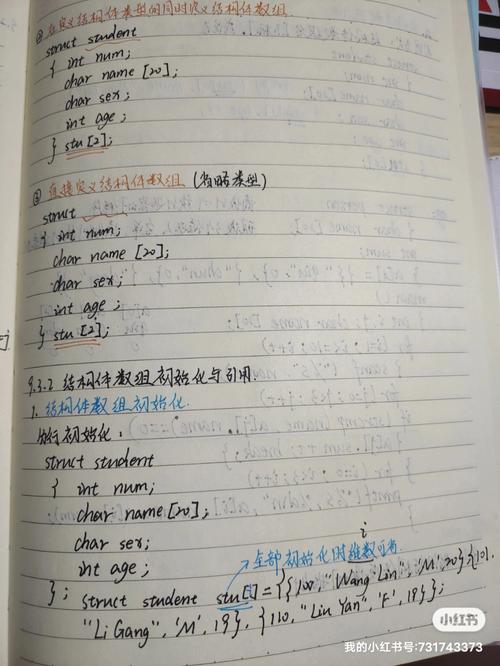 ② 在定义结构体类型的同时定义结构体数组
struct student
{ int num;
char name [20];
char sex;
int age;
} stu [2];
③ 直接定义结构体数组 (省略类型)
struct
{ int num;
char name [20];
char sex;
int age;
} stu [2];
9.3.2 结构体数组初始化与引用.
1. 结构体数组初始化.
分行初始化:
struct student
{ int num;
char name [20];
char sex;
int age;
全部初始化时维数可省
}; struct student stu[]={{100, "Wang Lin", 'M', 20},{101,
"Li Gang", 'M', 19}, {110, "Liu Yan", 'F', 19}};
小红书
我的小红书号:731743373